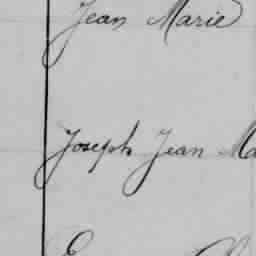 Jean Marie
Joseph Jean Ma